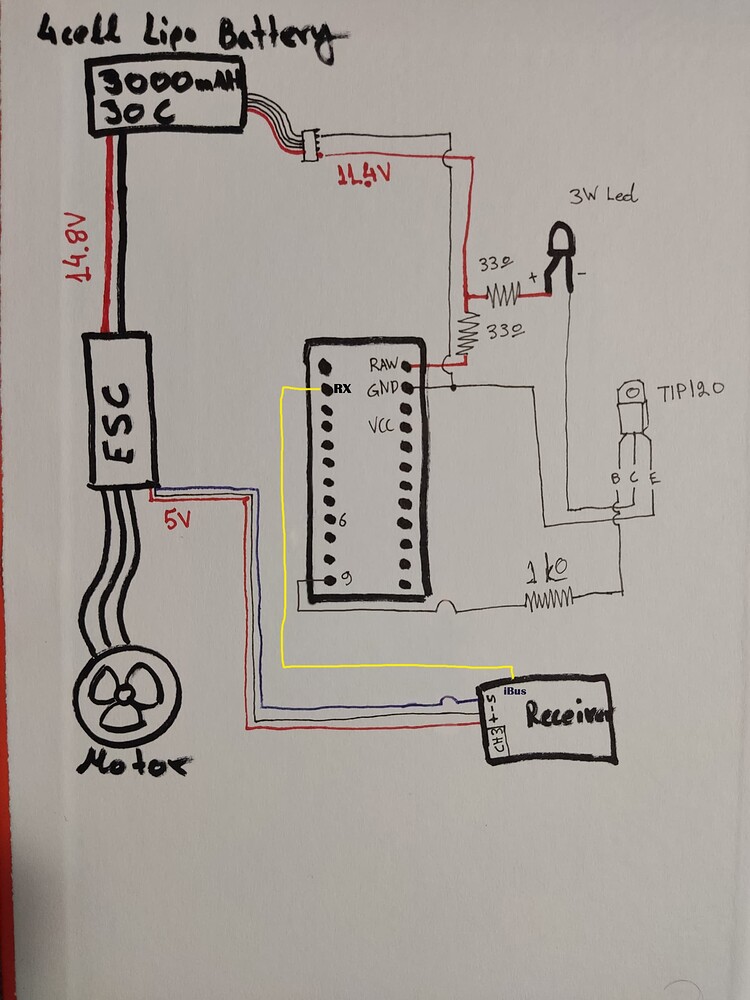 4cell Lipo Battery
3000mAH
30C
14.8V
11.4V
3W Led
33Ω
+ -
33Ω
RAW
RX
GND
VCC
TIP120
B C E
ESC
5V
6
9
1kΩ
iBus
S
-
+
CH3
Receiver
Motor